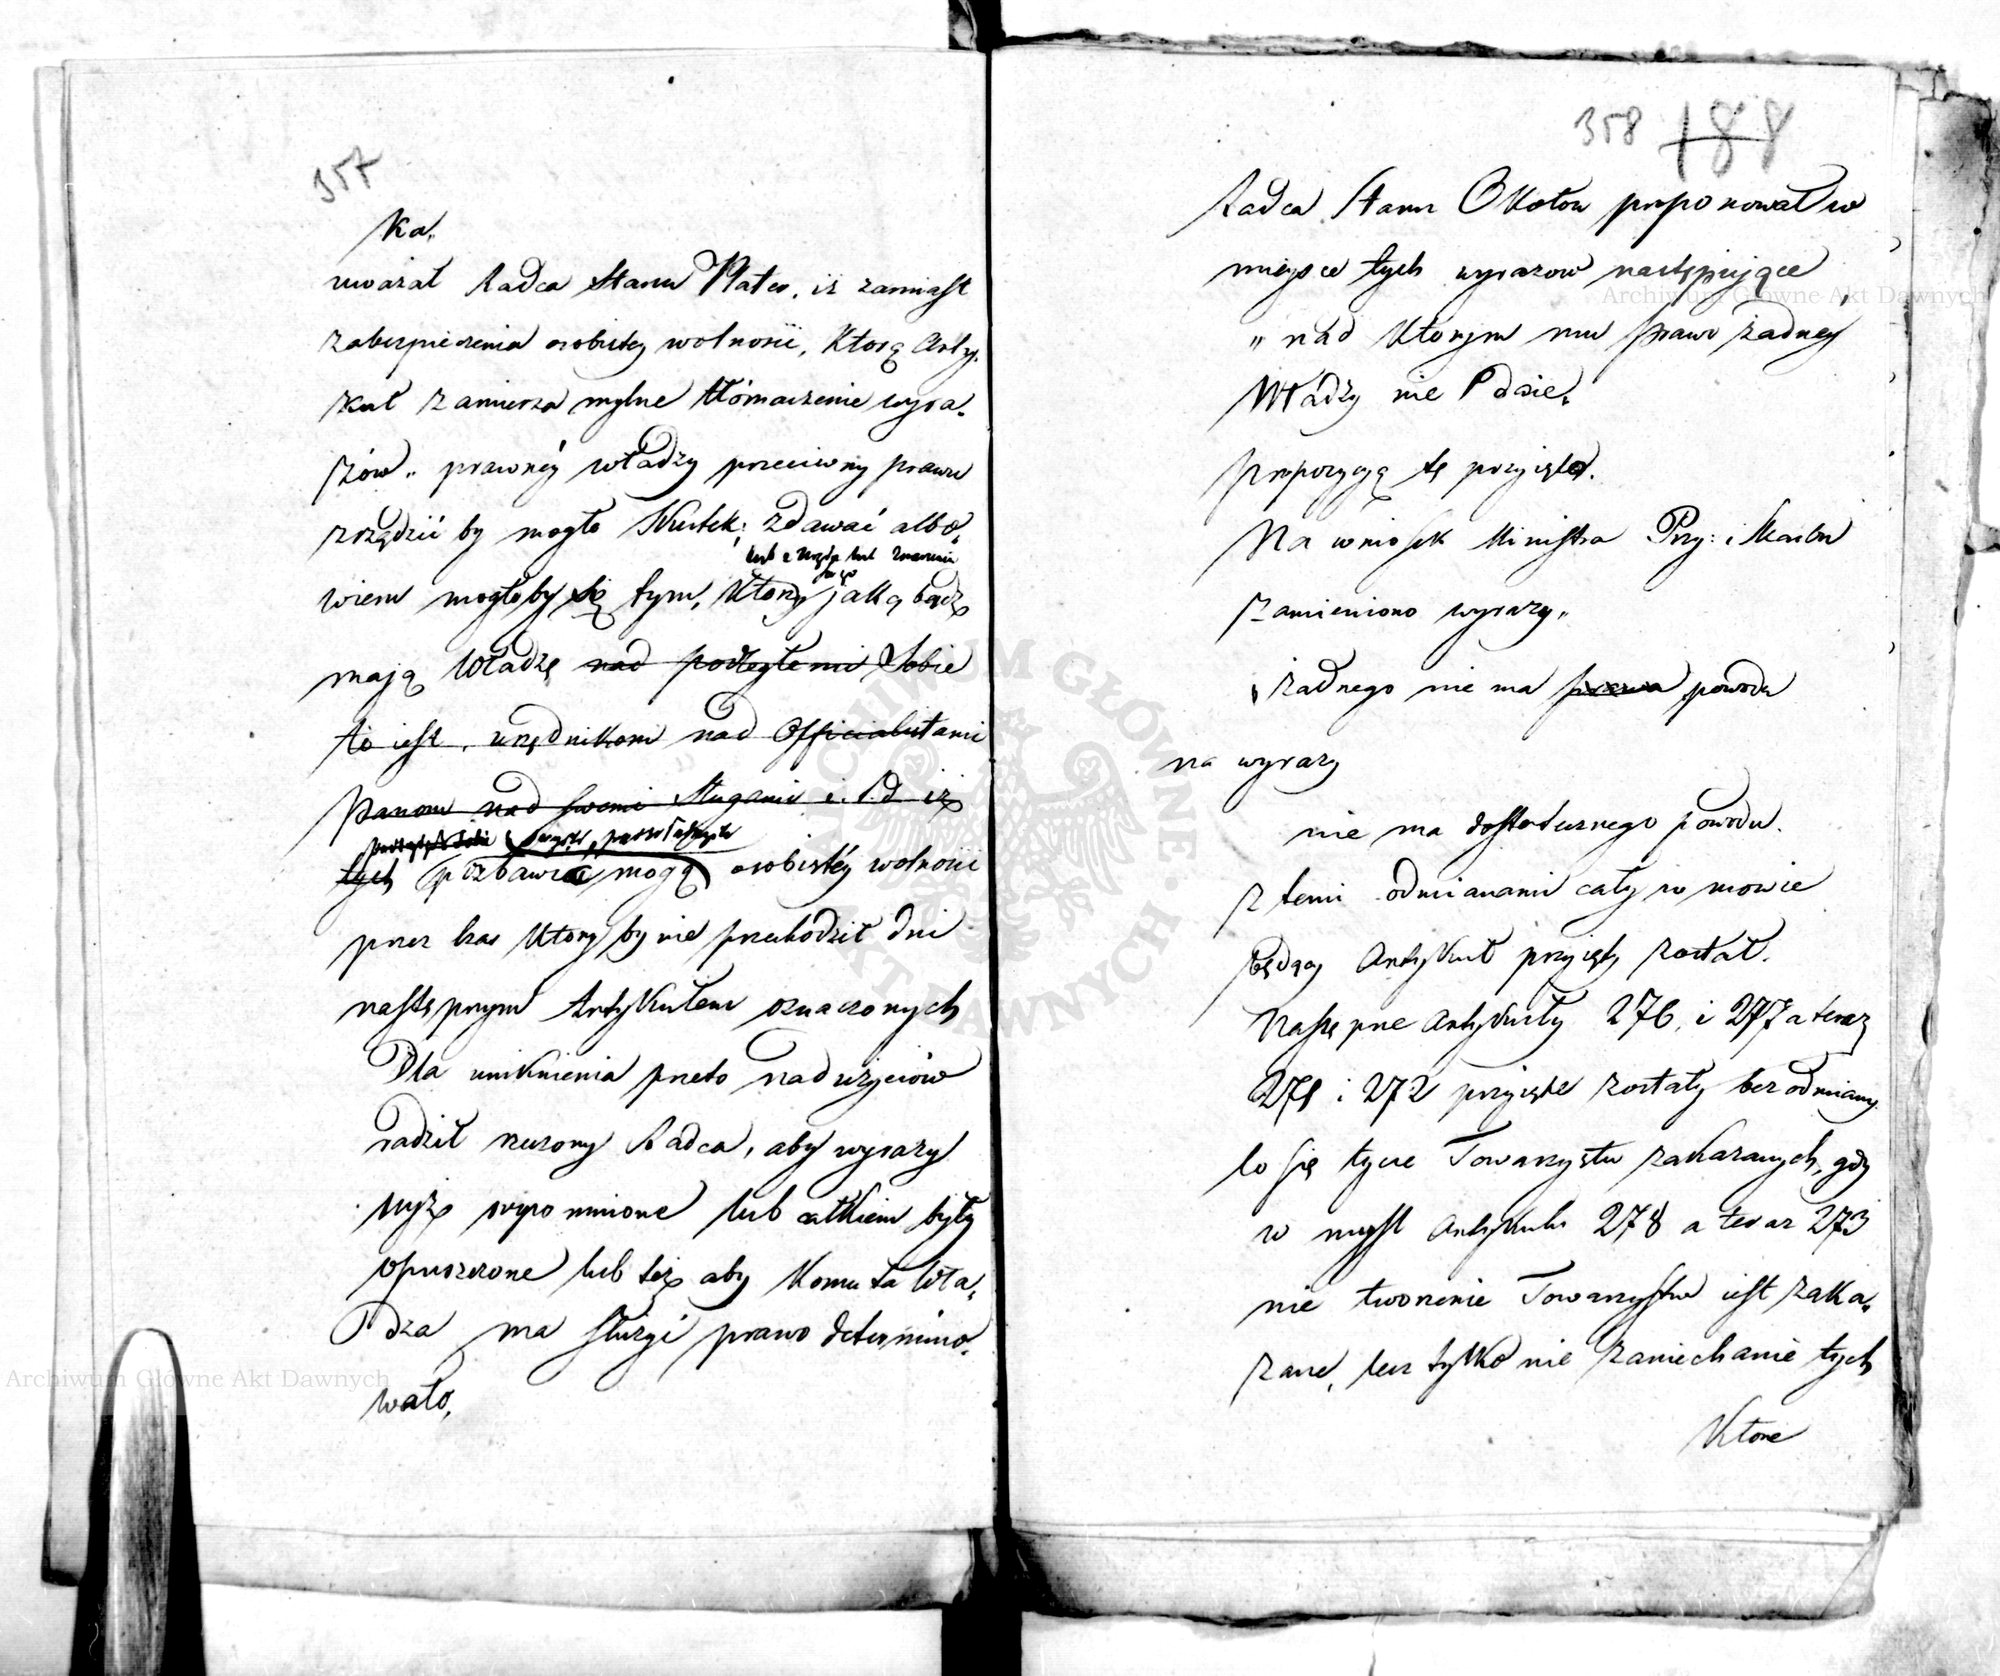 357
ka.
uważał Radca Stanu Plater, iż zamiast
zabezpieczenia osobistey wolności, którą Arty-
kuł zamierza mylne tłómaczenie wyra-
zów „ prawnéy władzy przeciwny prawu
zrządzić by mogło skutek; zdawać albo-
lub z urzędu lub znaczenia
swego
wiem mogłoby się tym, którzy jaką bądź
mają władzę nad podległemi sobie
to iest, urzędnikom nad Officialistami
Panom nad swemi sługami i. t. d. iż
podległych sobie
tych pozbawiać mogą osobistéy wolności
przez czas który by nie przechodził dni
następnym Artykułem oznaczonych
Dla uniknienia przeto nadużyciów
radził rzeczony Radca, aby wyrazy
wyż wspomnione lub całkiem były
opuszczone lub też aby komu ta wła-
dza ma służyć prawo determino-
wało,
358 188
Radca Stanu Okołow proponował w
mieysce tych wyrazow następuiące
„ nad którym mu prawo żadney
Władzy nie daie.
propozycyą tę przyięto.
Na wniosek Ministra Prz: i Skarbu
zamieniono wyrazy „
żadnego nie ma prawa powodu
na wyrazy
nie ma dostatecznego powodu.
z temi odmianami cały w mowie
będący Artykuł przyięty został.
Następne Artykuły 276, i 277 a teraz
271 i 272 przyięte zostały bez odmiany.
Co się tycze Towarzystw zakazanych, gdy
w myśl Artykułu 278 a teraz 273
nie tworzenie Towarzystw iest zaka-
zane, lecz tylko nie zaniechanie tych
które
Archiwum Główne Akt Dawnych
Archiwum Główne Akt Dawnych
ARCHIWUM GŁÓWNE AKT DAWNYCH